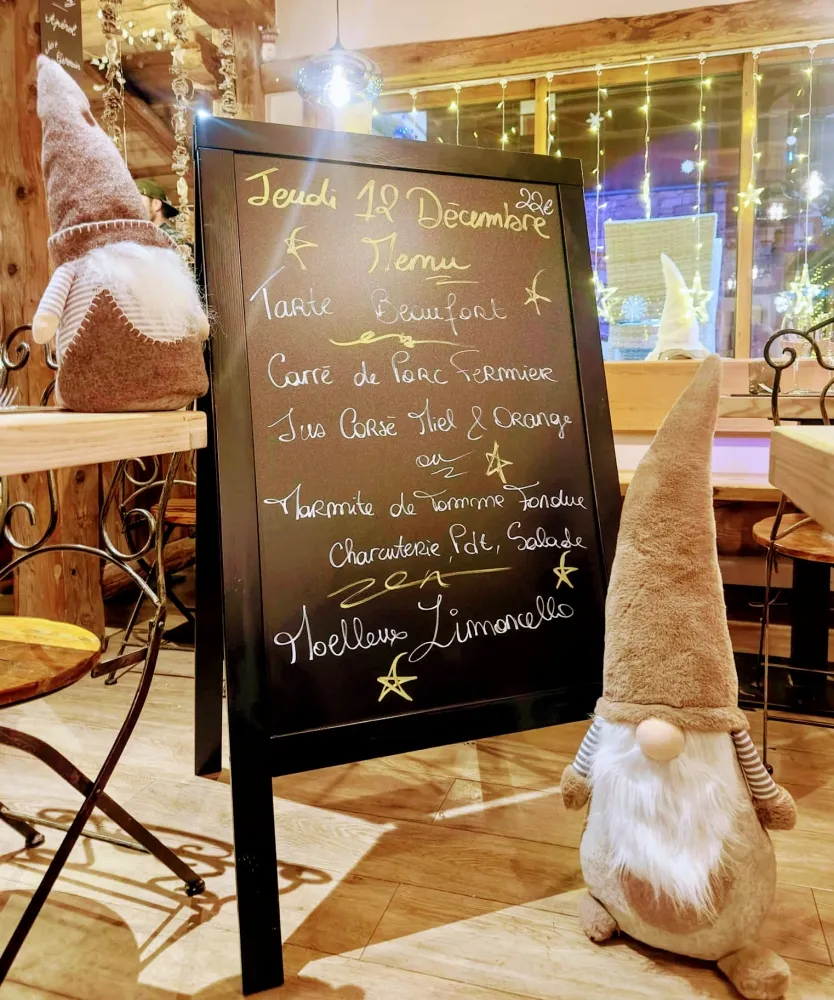 Apérol
Jeudi 12 Décembre
22€
Menu
Tarte Beaufort
Carré de Porc Fermier
Jus Corsé Miel & Orange
ou
Marmite de Tomme Fondue
Charcuterie, Pdt, Salade
Moelleux Limoncello